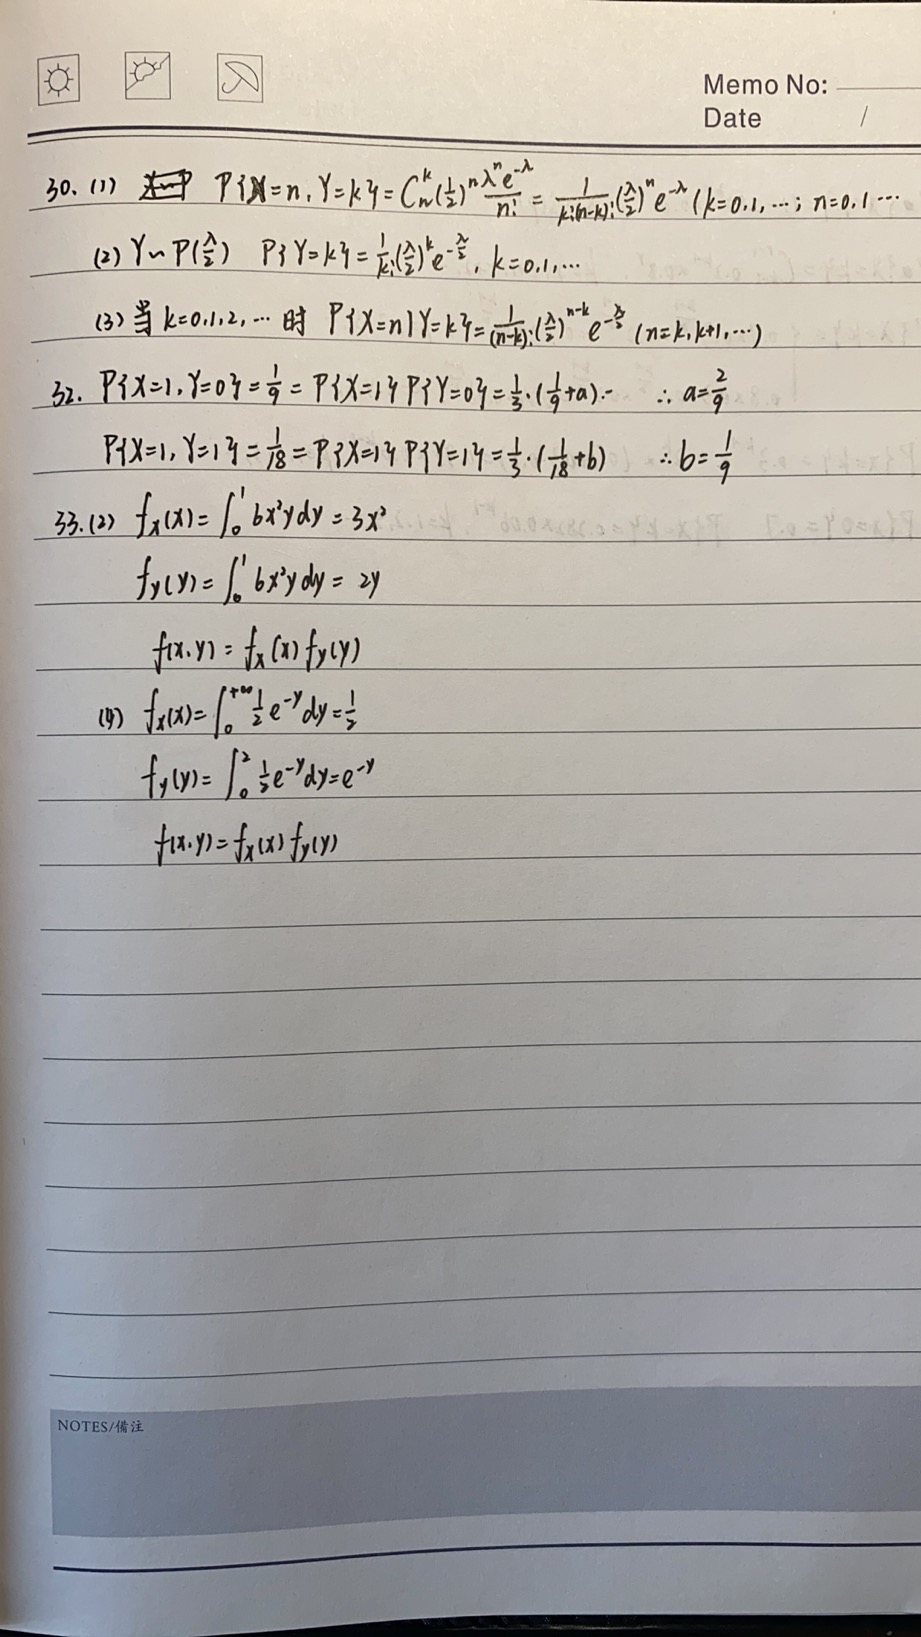 Memo No:
Date /
30. (1) P{X=n, Y=k} = C_n^k (1/2)^n λ^n e^{-λ}/n! = 1/(k!(n-k)!) (λ/2)^n e^{-λ} (k=0,1,…; n=0,1…
(2) Y~P(λ/2) P{Y=k} = 1/k! (λ/2)^k e^{-λ/2}, k=0,1,…
(3) 当 k=0,1,2,… 时 P{X=n|Y=k} = 1/(n-k)! (λ/2)^{n-k} e^{-λ/2} (n=k,k+1,…)
32. P{X=1, Y=0} = 1/9 = P{X=1} P{Y=0} = 1/3·(1/9+a) ∴ a=2/9
P{X=1, Y=1} = 1/18 = P{X=1} P{Y=1} = 1/3·(1/18+b) ∴ b=1/9
33. (2) f_X(x) = ∫_0^1 6x²y dy = 3x²
f_Y(y) = ∫_0^1 6x²y dy = 2y
f(x,y) = f_X(x) f_Y(y)
(4) f_X(x) = ∫_0^{+∞} 1/2 e^{-y} dy = 1/2
f_Y(y) = ∫_0^2 1/2 e^{-y} dy = e^{-y}
f(x,y) = f_X(x) f_Y(y)
NOTES/備注